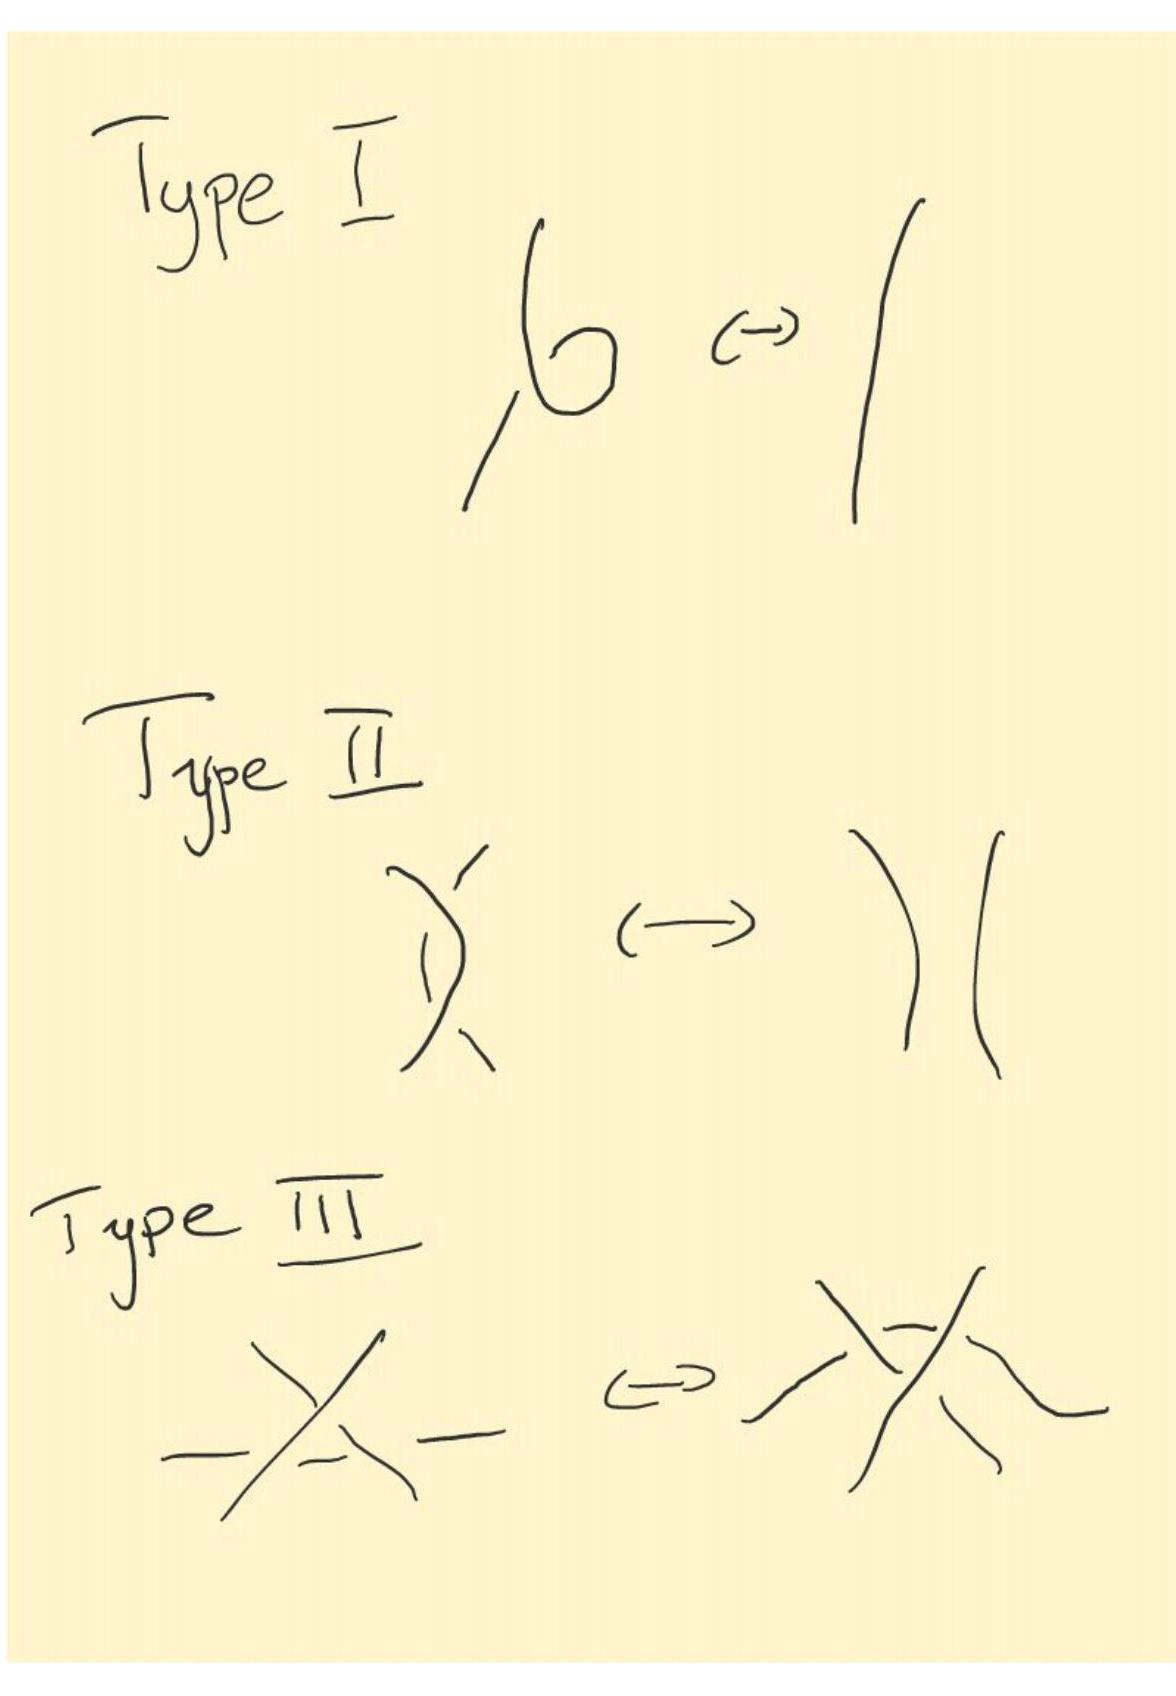 Type I
Type II
Type III